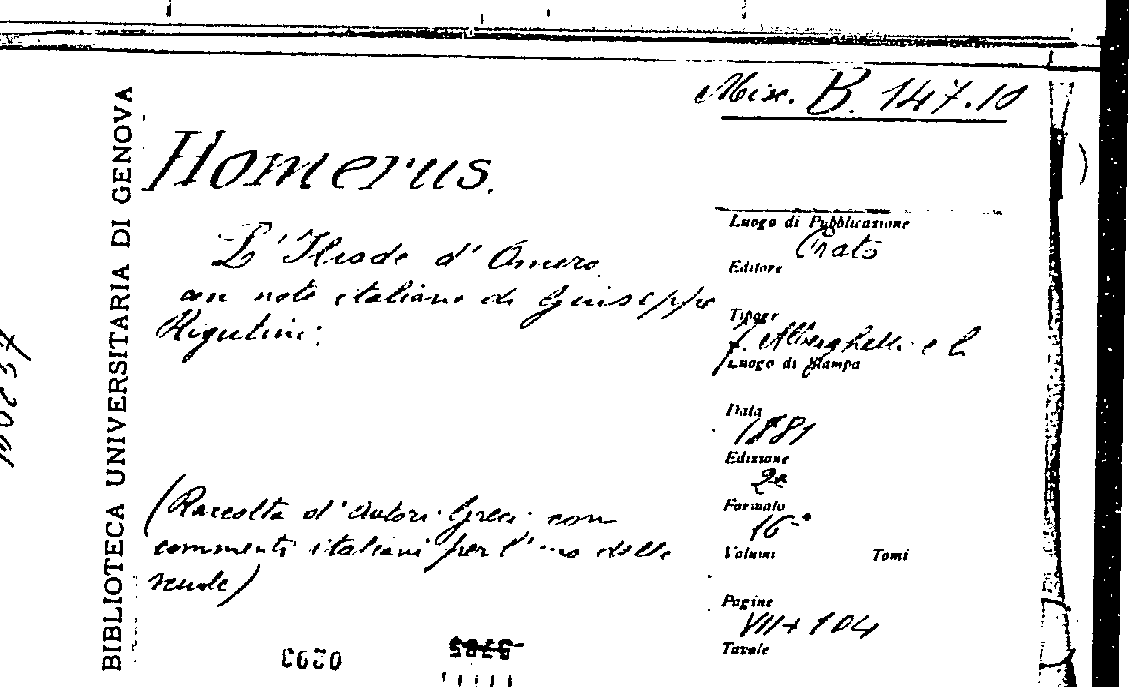 Misc. B. 147.10
BIBLIOTECA UNIVERSITARIA DI GENOVA
Homerus.
L'Iliade d'Omero
con note italiane di Giuseppe
Rigutini:
(Raccolta d'autori Greci con
commenti italiani per l'uso delle
scuole)
Luogo di Pubblicazione
Prato
Editore
Tipogr
F. Alberghetti e C.
Luogo di Stampa
Data
1881
Edizione
2a
Formato
16°
Volumi Tomi
Pagine
VII+104
Tavole